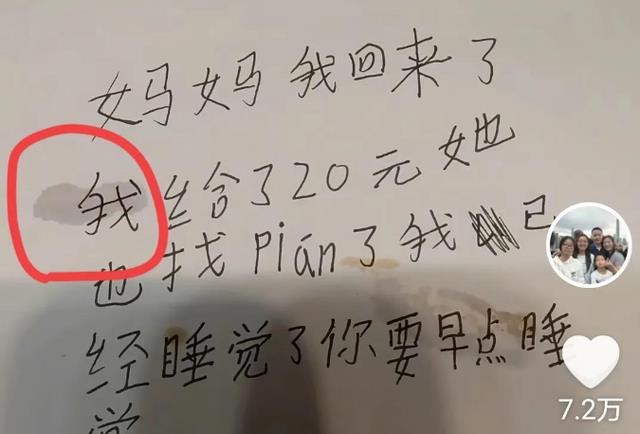 妈妈我回来了
我给了20元她
也找pián了我已
经睡觉了你要早点睡
觉
7.2万